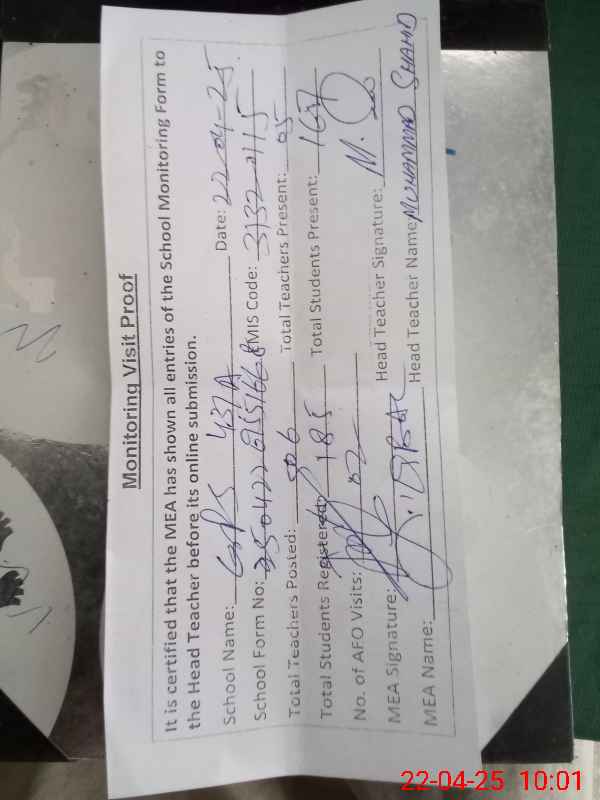 Monitoring Visit Proof
It is certified that the MEA has shown all entries of the School Monitoring Form to
the Head Teacher before its online submission.
School Name: GPS 437A Date: 22-04-25
School Form No: EMIS Code: 31320115
Total Teachers Posted: 06 Total Teachers Present: 05
Total Students Registered: 185 Total Students Present: 167
No. of AFO Visits: 02
MEA Signature: Head Teacher Signature:
MEA Name: IQBAL Head Teacher Name: MUHAMMAD SHAHID
22-04-25 10:01